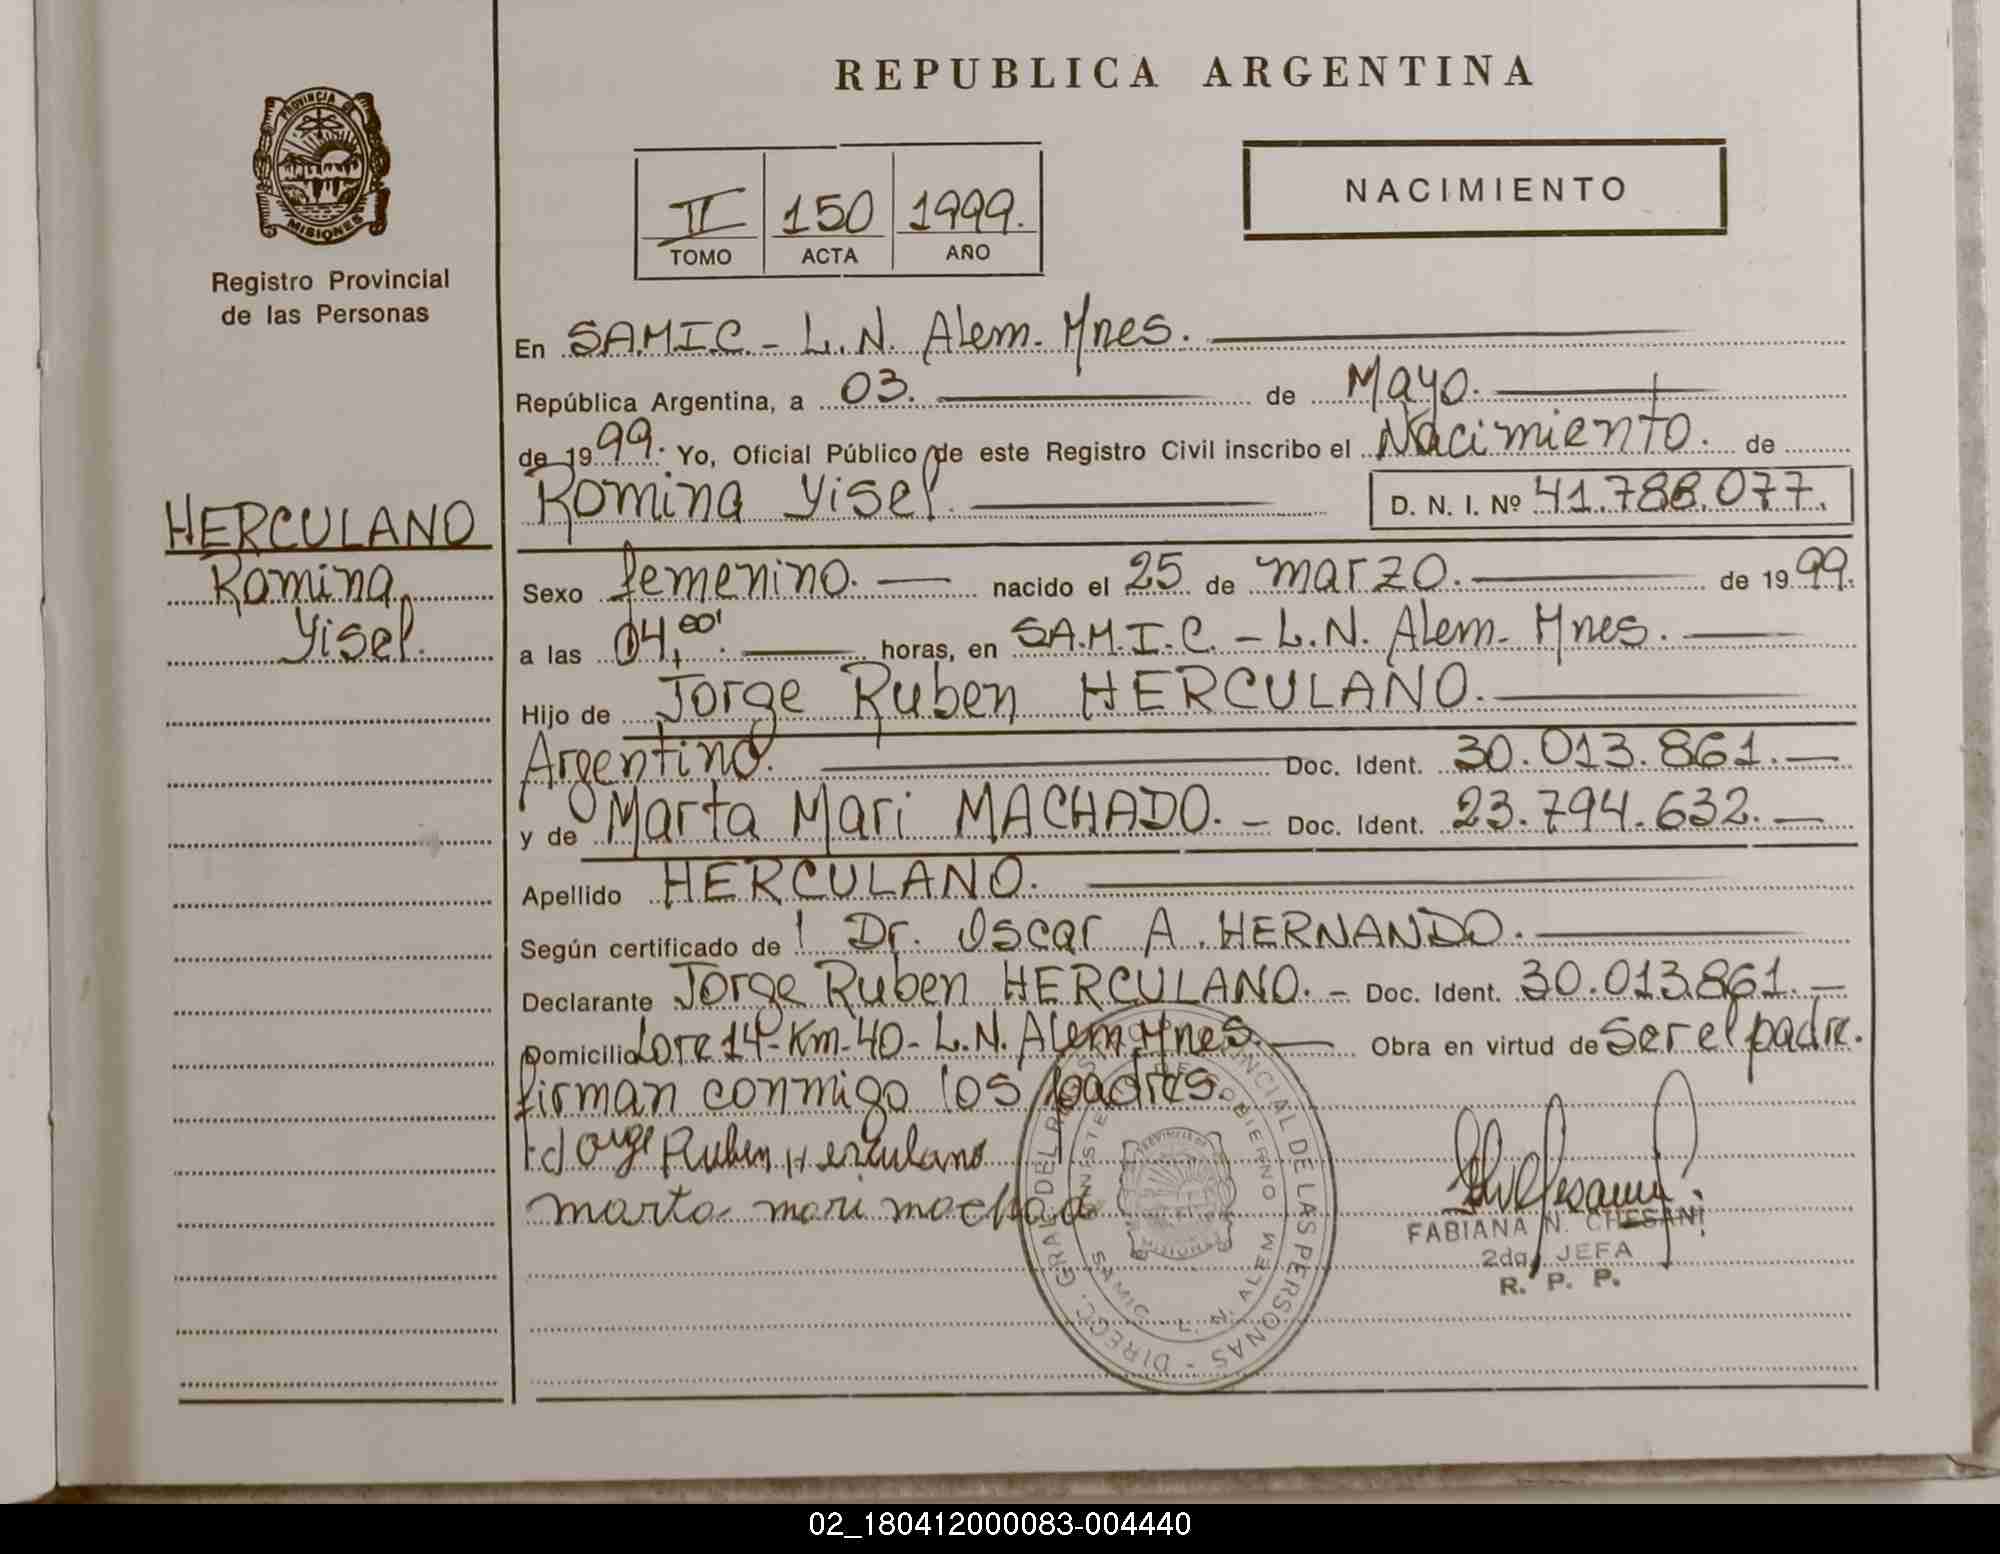 REPUBLICA ARGENTINA
PROVINCIA DE
MISIONES
Registro Provincial
de las Personas
II 150 1999.
TOMO ACTA AÑO
NACIMIENTO
En S.A.M.I.C. - L.N. Alem. Mnes.
República Argentina, a 03. de Mayo.
de 1999. Yo, Oficial Público de este Registro Civil inscribo el Nacimiento. de
Romina Yisel. D. N. I. Nº 41.788.077.
HERCULANO
Romina
Yisel.
Sexo femenino. nacido el 25 de marzo. de 1999.
a las 04,00'. horas, en S.A.M.I.C. - L.N. Alem. Mnes.
Hijo de Jorge Ruben HERCULANO.
Argentino. Doc. Ident. 30.013.861.
y de Marta Mari MACHADO. Doc. Ident. 23.794.632.
Apellido HERCULANO.
Según certificado de Dr. Oscar A. HERNANDO.
Declarante Jorge Ruben HERCULANO. Doc. Ident. 30.013.861.
Domicilio Lote 14-Km-40- L.N. Alem Mnes. Obra en virtud de Ser el padre.
firman conmigo los padres.
Jorge Ruben Herculano
marta mari machado
DIRECC. GRAL DEL PROVINCIAL DE LAS PERSONAS
DE GOBIERNO
PROVINCIA DE
MISIONES
SAMIC L. N. ALEM
FABIANA N. CHESANI
2da. JEFA
R. P. P.
02_180412000083-004440